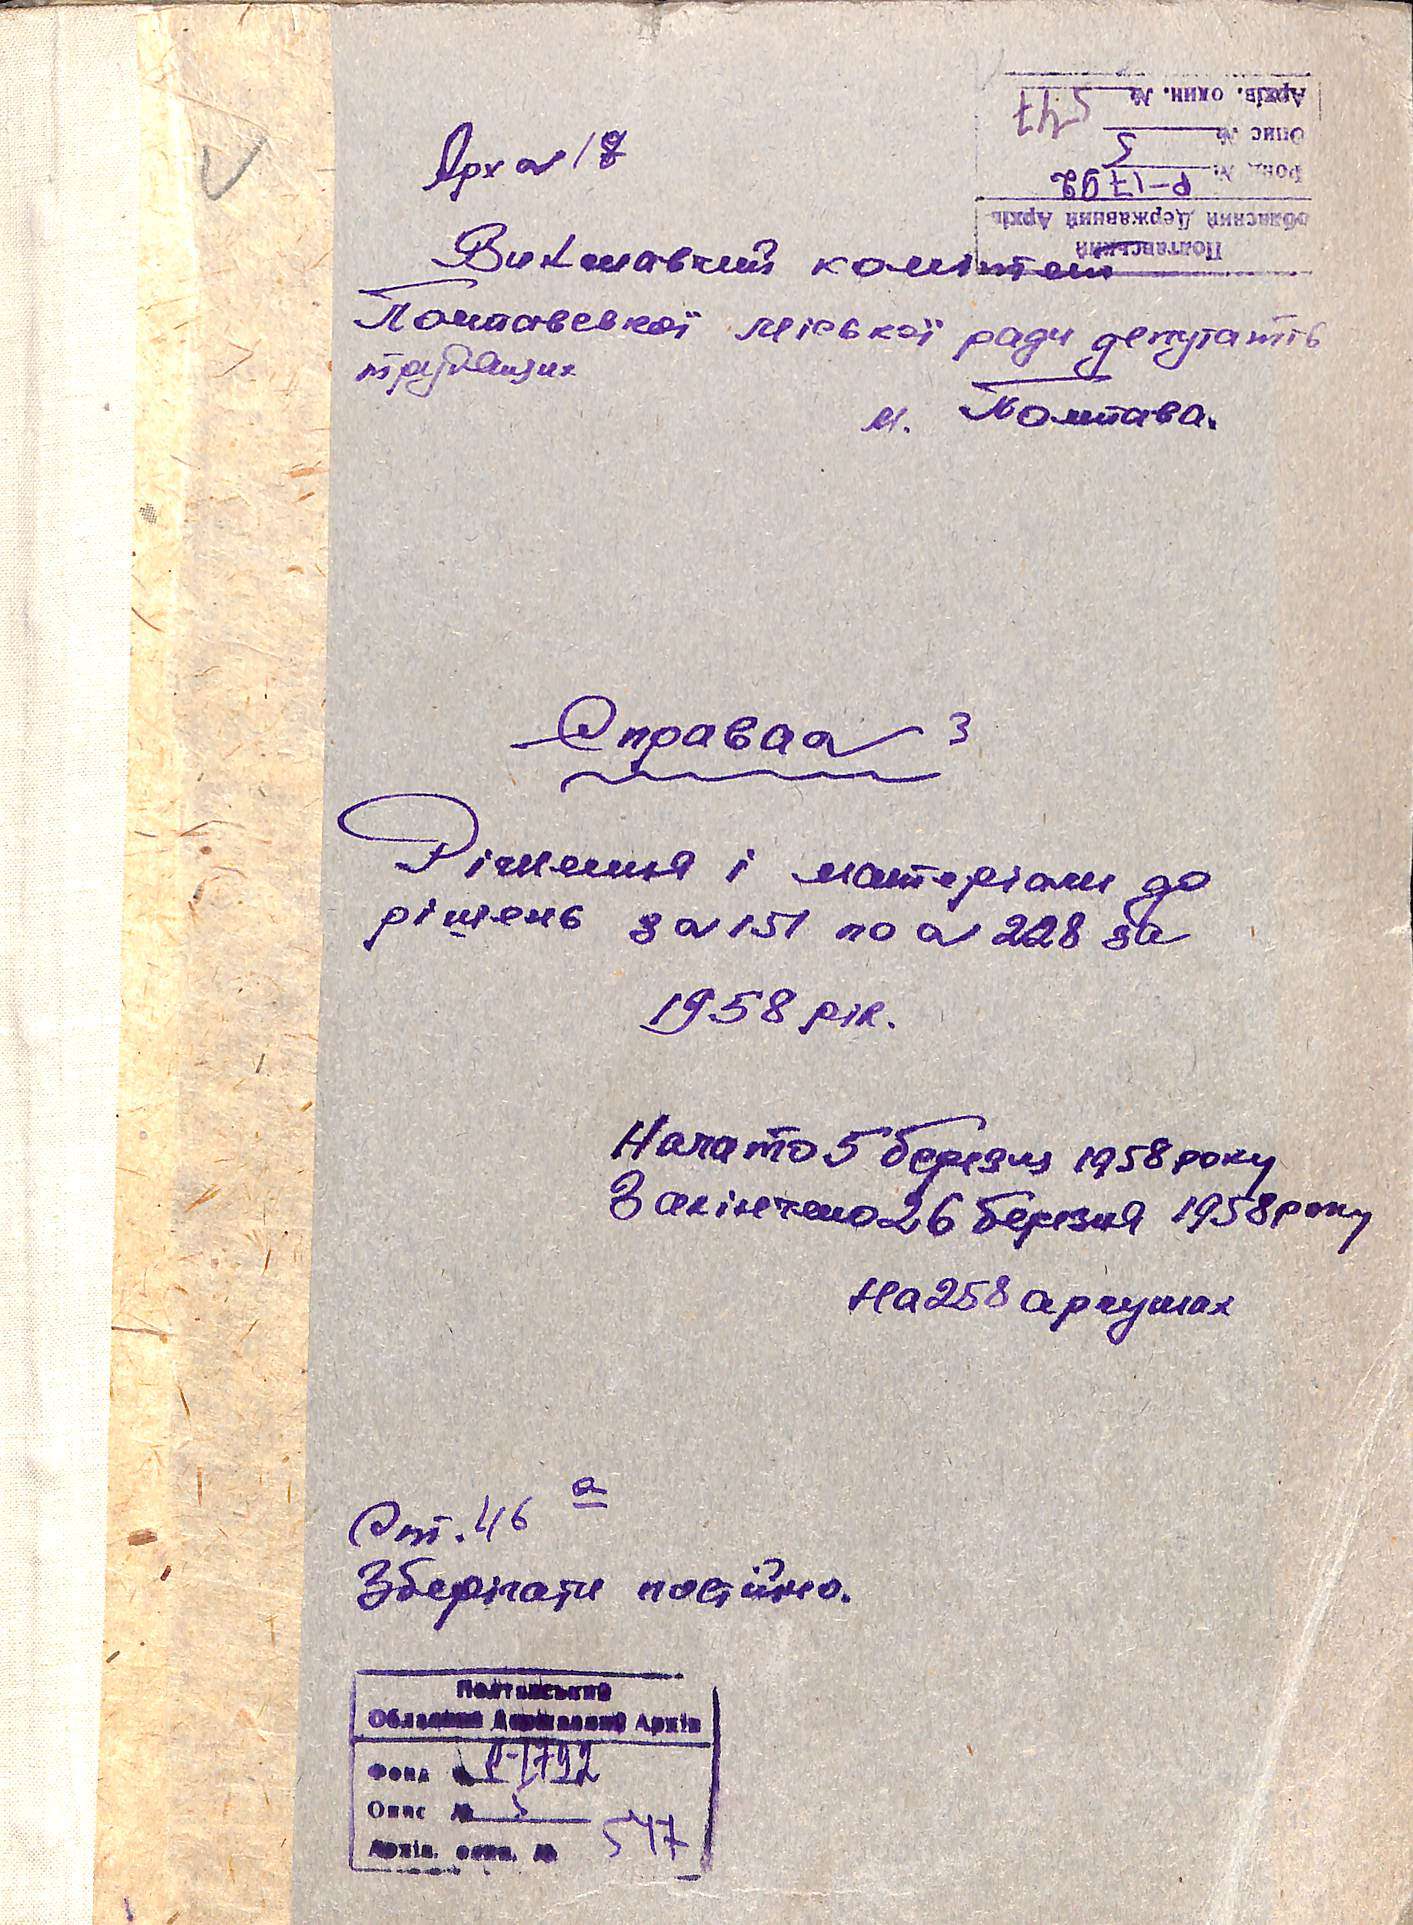 Арх № 18
Полтавський
обласний Державний Архів
Фонд № Р-1792
Опис № 5
Архів. один. № 547
Виконавчий комітет
Полтавської міської ради депутатів
трудящих
м. Полтава.
Справа № 3
Рішення і матеріали до
рішень з № 151 по № 228 за
1958 рік.
Начато 5 березня 1958 року
Закінчено 26 березня 1958 року
На 258 аркушах
Ст. 46 а
Зберігати постійно.
Полтавський
Обласний Державний Архів
Фонд № Р-1792
Опис № 5
Архів. один. № 547